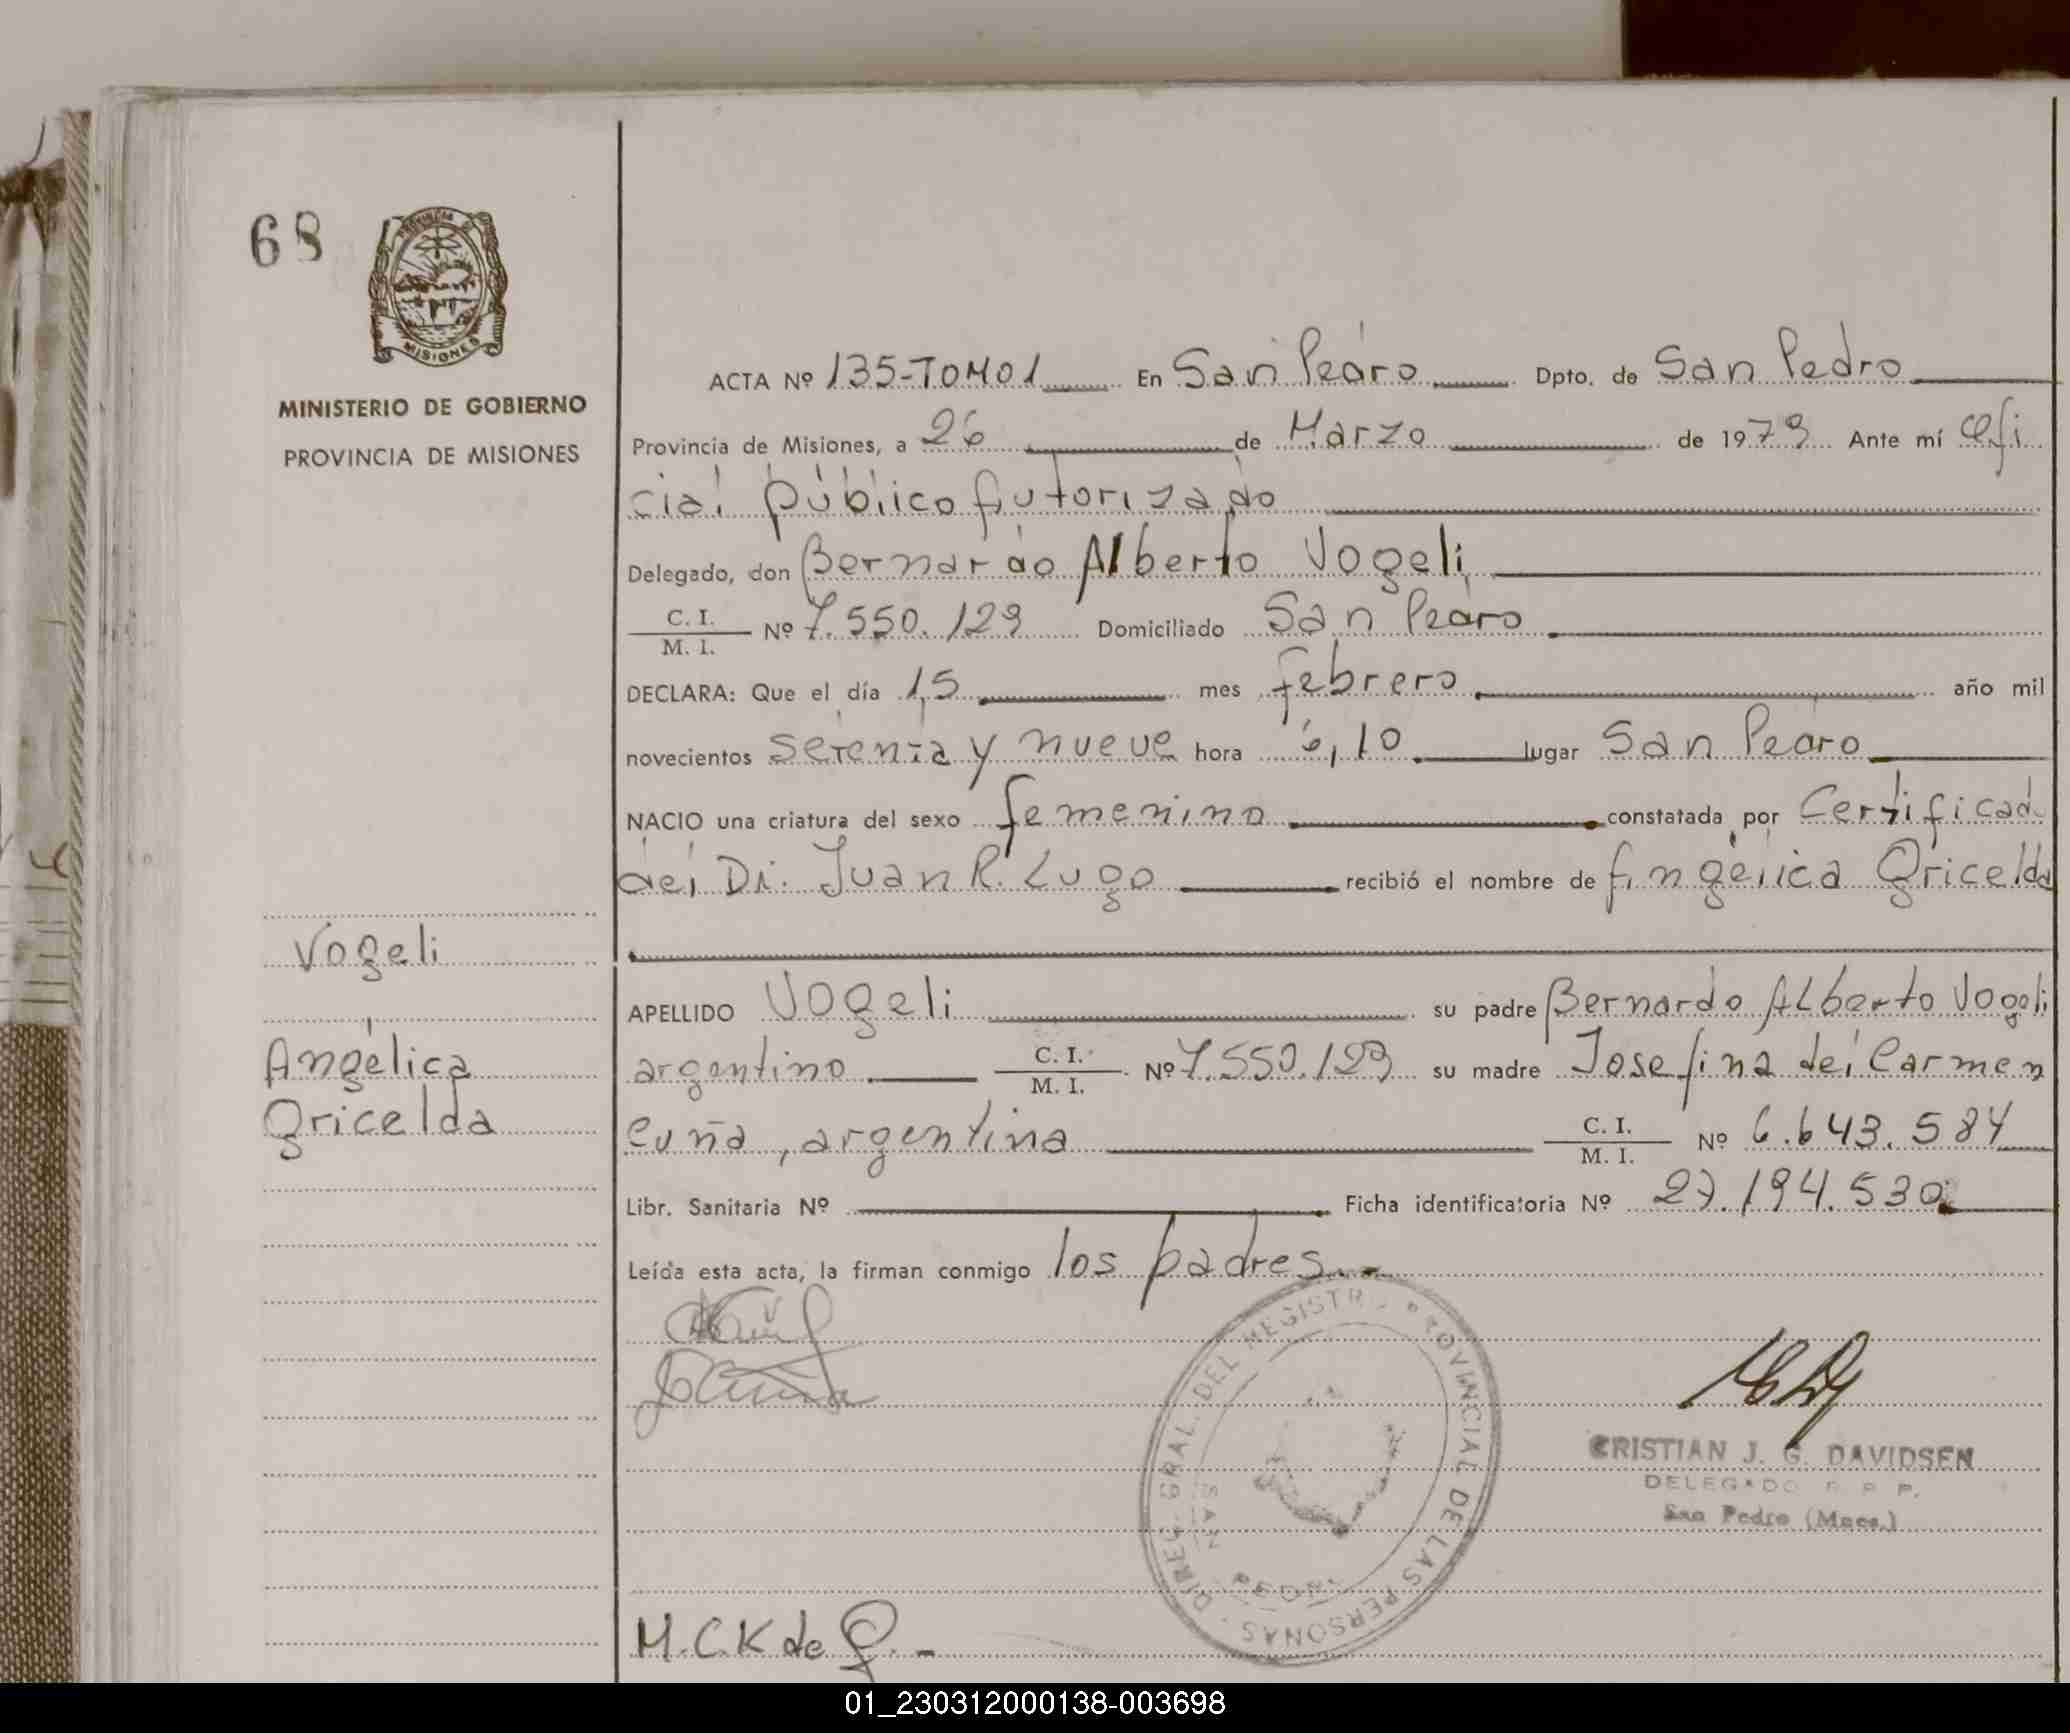 68
PROVINCIA DE
MISIONES
MINISTERIO DE GOBIERNO
PROVINCIA DE MISIONES
Vogeli
Angélica
Gricelda
ACTA Nº 135-TOMO 1 En San Pedro Dpto. de San Pedro
Provincia de Misiones, a 26 de Marzo de 1979 Ante mí Ofi
cial público Autorizado
Delegado, don Bernardo Alberto Vogeli
C. I.
M. I. Nº 7.550.129 Domiciliado San Pedro
DECLARA: Que el día 15 mes febrero año mil
novecientos setenta y nueve hora 6,10 lugar San Pedro
NACIO una criatura del sexo femenino constatada por Certificado
del Dr. Juan R. Lugo recibió el nombre de Angélica Gricelda
APELLIDO Vogeli su padre Bernardo Alberto Vogeli
argentino C. I.
M. I. Nº 7.550.129 su madre Josefina del Carmen
Cuña, argentina C. I.
M. I. Nº 6.643.584
Libr. Sanitaria Nº Ficha identificatoria Nº 27.194.530
Leída esta acta, la firman conmigo los padres.-
DIREC. GRAL. DEL REGISTRO PROVINCIAL DE LAS PERSONAS
SAN PEDRO
CRISTIAN J. G. DAVIDSEN
DELEGADO R. P. P.
San Pedro (Mnes.)
M.C.K de G.-
01_230312000138-003698